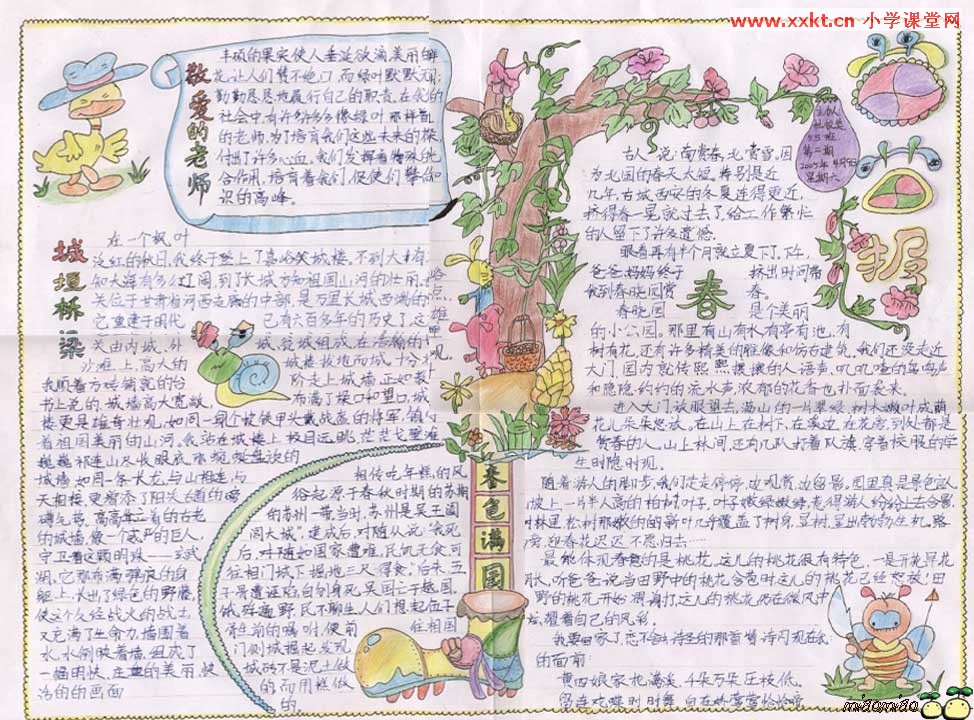 www.xxkt.cn 小学课堂网
敬爱的老师
丰硕的果实使人垂涎欲滴,美丽的鲜
花,让人们赞不绝口,而绿叶默默无闻
勤勤恳恳地履行自己的职责。在我的
社会中,有许许多多像绿叶那样
的老师,为了培育我们这些未来的
付出了许多心血。我们发挥着
合作用,培育着我们,促使们攀
识的高峰。
主办
55班
第二期
2005年4月9日
星期六
城墙桥梁
在一个枫叶
泛红的秋日,我终于登上了嘉峪关城楼。不到大
知大海有多么辽阔,到了长城方知祖国山河的壮丽。
关位于甘肃省河西走廊的中部,是万里长城西端的
它重建于明代
已有六百多年的历史了。这
关由内城、外
城、
沙滩上,高大的
城楼拔地而城,十分
我顺着方砖铺就的台
阶走上城墙,正如
书上说的,城墙高大宽敞,
布满了垛口和望口,城
楼更是雄奇壮观,如同一员个披铁甲头戴战盔的将军,镇守
着祖国美丽的山河。我站在城楼上,极目远眺,茫茫戈壁滩
巍巍祁连山尽收眼底,
城墙如同一条长龙,与山相连,与
天相接,更增添了阳关古道的磅
礴气势。高高耸立着的古老
的城墙,像一个威严的巨人,
守卫着这颗明珠——玄武
湖,它那布满弹痕的身
躯上,长出了绿色的野藤,
使这个久经战火的战士
又充满了生命力,墙围着
水,水倒映着墙,组成了
一幅明快、庄重的美丽
的画面
相传吃年糕的风
俗起源于春秋时期的苏
的苏州一带,当时,苏州是吴王阖
闾大城”。建成后,对随从说:“我死
后,对随如国家遭难,民饥无食可
往相门城下掘地三尺得食。”后来,五
子胥遭诬陷自刎身死,吴国亡于越国,
饿殍遍野,民不聊生,人们想起伍子
胥生前的嘱咐,便前
往相国
门侧城掘起,发现
城砖不是泥土做
的而用糕做
的
春色满园
古人说:南赏春,北赏雪,因
为北国的春天太短,特别是近
几年,古城西安的冬夏连得更近,
挤得春一晃就过去了,给工作繁忙
的人留下了许多遗憾。
眼看再有半个月就立夏了,下午,
爸爸妈妈终于
挤出时间带
我到春晓园赏
春。
春
春晓园
是个美丽
的小公园。那里有山有水,有亭有池,有
树有花,还有许多精美的雕像和仿古建筑。我们还没走近
大门,园内就传熙熙攘攘的人语声,叽叽喳的鸟鸣声
和隐隐约约的流水声,浓郁的花香也扑面袭来。
进入大门,放眼望去,满山的一片翠绿,树木嫩叶成荫,
花儿朵朵怒放。在山上,在树下,在溪边,在花旁,到处都是
赏春的人,山上林间,还有几队打着队旗,穿着校服的学
生时隐时现。
随着游人的脚步,我们走走停停,边观赏边留影。园里真是景色
坡上,一片半人高的柏树叶子,叶子嫩绿嫩绿,惹得游人纷纷上去合影。
树林里,松树那嫩的的新叶几乎覆盖了树身,显树,呈出勃勃生机,路
旁,迎春花迟迟不愿归去……
最能体现春意的是桃花。这儿的桃花很有特色,一是开花早花
期长,听爸爸说,当田野中的桃花含苞时,这儿的桃花已经怒放!田
野的桃花开始凋谢了,这儿的桃花仍在微风中
绽耀着自己的风彩。
我要回家了,忍不住,诗圣的那首情诗闪现在
的面前:
黄四娘家花满溪,千朵万朵压枝低。
留连戏蝶时时舞,自在娇莺恰恰啼
miaomiao